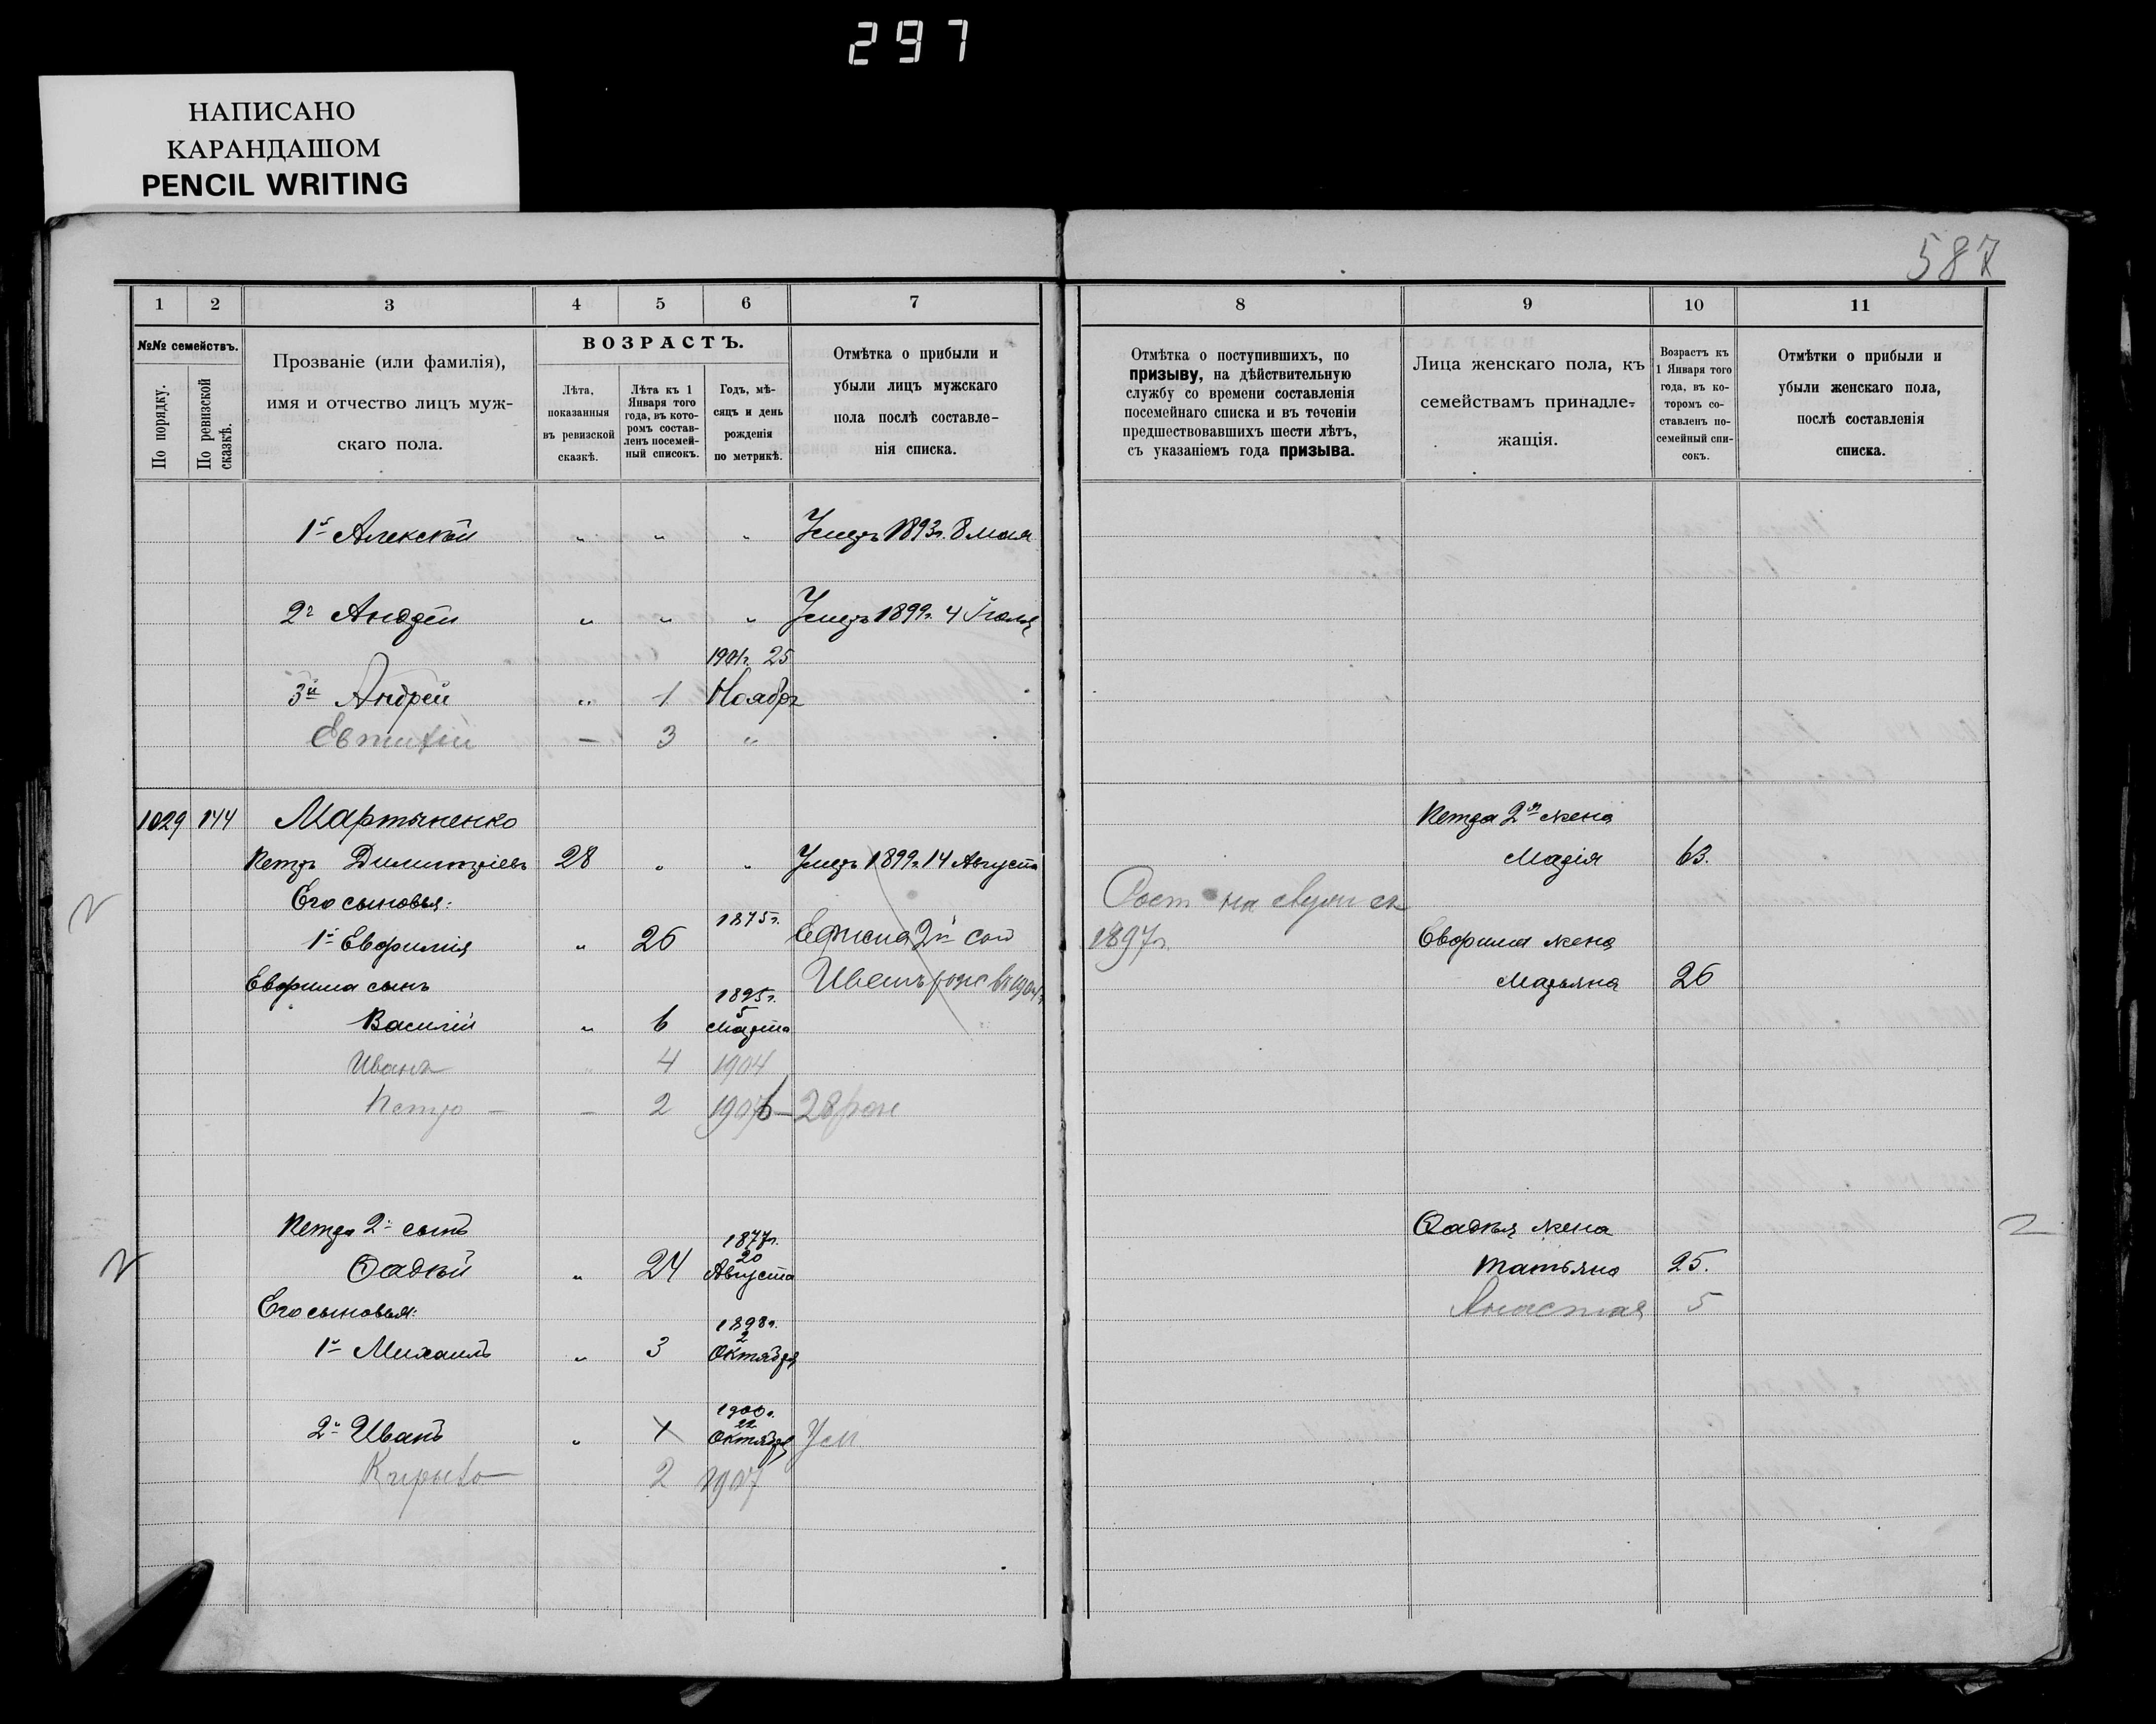 297
НАПИСАНО
КАРАНДАШОМ
PENCIL WRITING
587
1 2 3 4 5 6 7
№№ семействъ.
По порядку.
По ревизской сказкѣ.
Прозваніе (или фамилія),
имя и отчество лицъ муж-
скаго пола.
ВОЗРАСТЪ.
Лѣта,
показанныя
въ ревизской
сказкѣ.
Лѣта къ 1
Января того
года, въ кото-
ромъ состав-
ленъ посемей-
ный списокъ.
Годъ, мѣ-
сяцъ и день
рожденія
по метрикѣ.
Отмѣтка о прибыли и
убыли лицъ мужскаго
пола послѣ составле-
нія списка.
1й Алексѣй " " " Умеръ 1893г. 8 мая
2й Андрей " " " Умеръ 1899г. 4 Іюля
1901г. 25
3й Андрей " 1 Ноябр
Евтихій — 3 "
1029 144 Мартыненко
Петръ Димитріевъ 28 " " Умеръ 1899г. 14 Августа
Его сыновья:
1875г.
1й Евфимій " 26 Ефима 2й сын
Евфима сынъ Иванъ в 1904г
1895г.
5
Василій " 6 Марта
Иванъ " 4 1904
Петро — — 2 1906 — 28
Петра 2й сынъ
1877г.
20
Фадѣй " 24 Августа
Его сыновья:
1898г.
2
1й Михаилъ " 3 Октября
1900г.
22
2й Иванъ " 1 Октября Ум
Кирило 2 1907
8 9 10 11
Отмѣтка о поступившихъ, по
призыву, на дѣйствительную
службу со времени составленія
посемейнаго списка и въ теченіи
предшествовавшихъ шести лѣтъ,
съ указаніемъ года призыва.
Лица женскаго пола, къ
семействамъ принадле-
жащія.
Возрастъ къ
1 Января того
года, въ ко-
торомъ со-
ставленъ по-
семейный спи-
сокъ.
Отмѣтки о прибыли и
убыли женскаго пола,
послѣ составленія
списка.
Петра 2я жена
Марія 63.
на
1897г. Евфима жена
Марьяна 26
Фадѣя жена
Татьяна 25.
Анастая 5